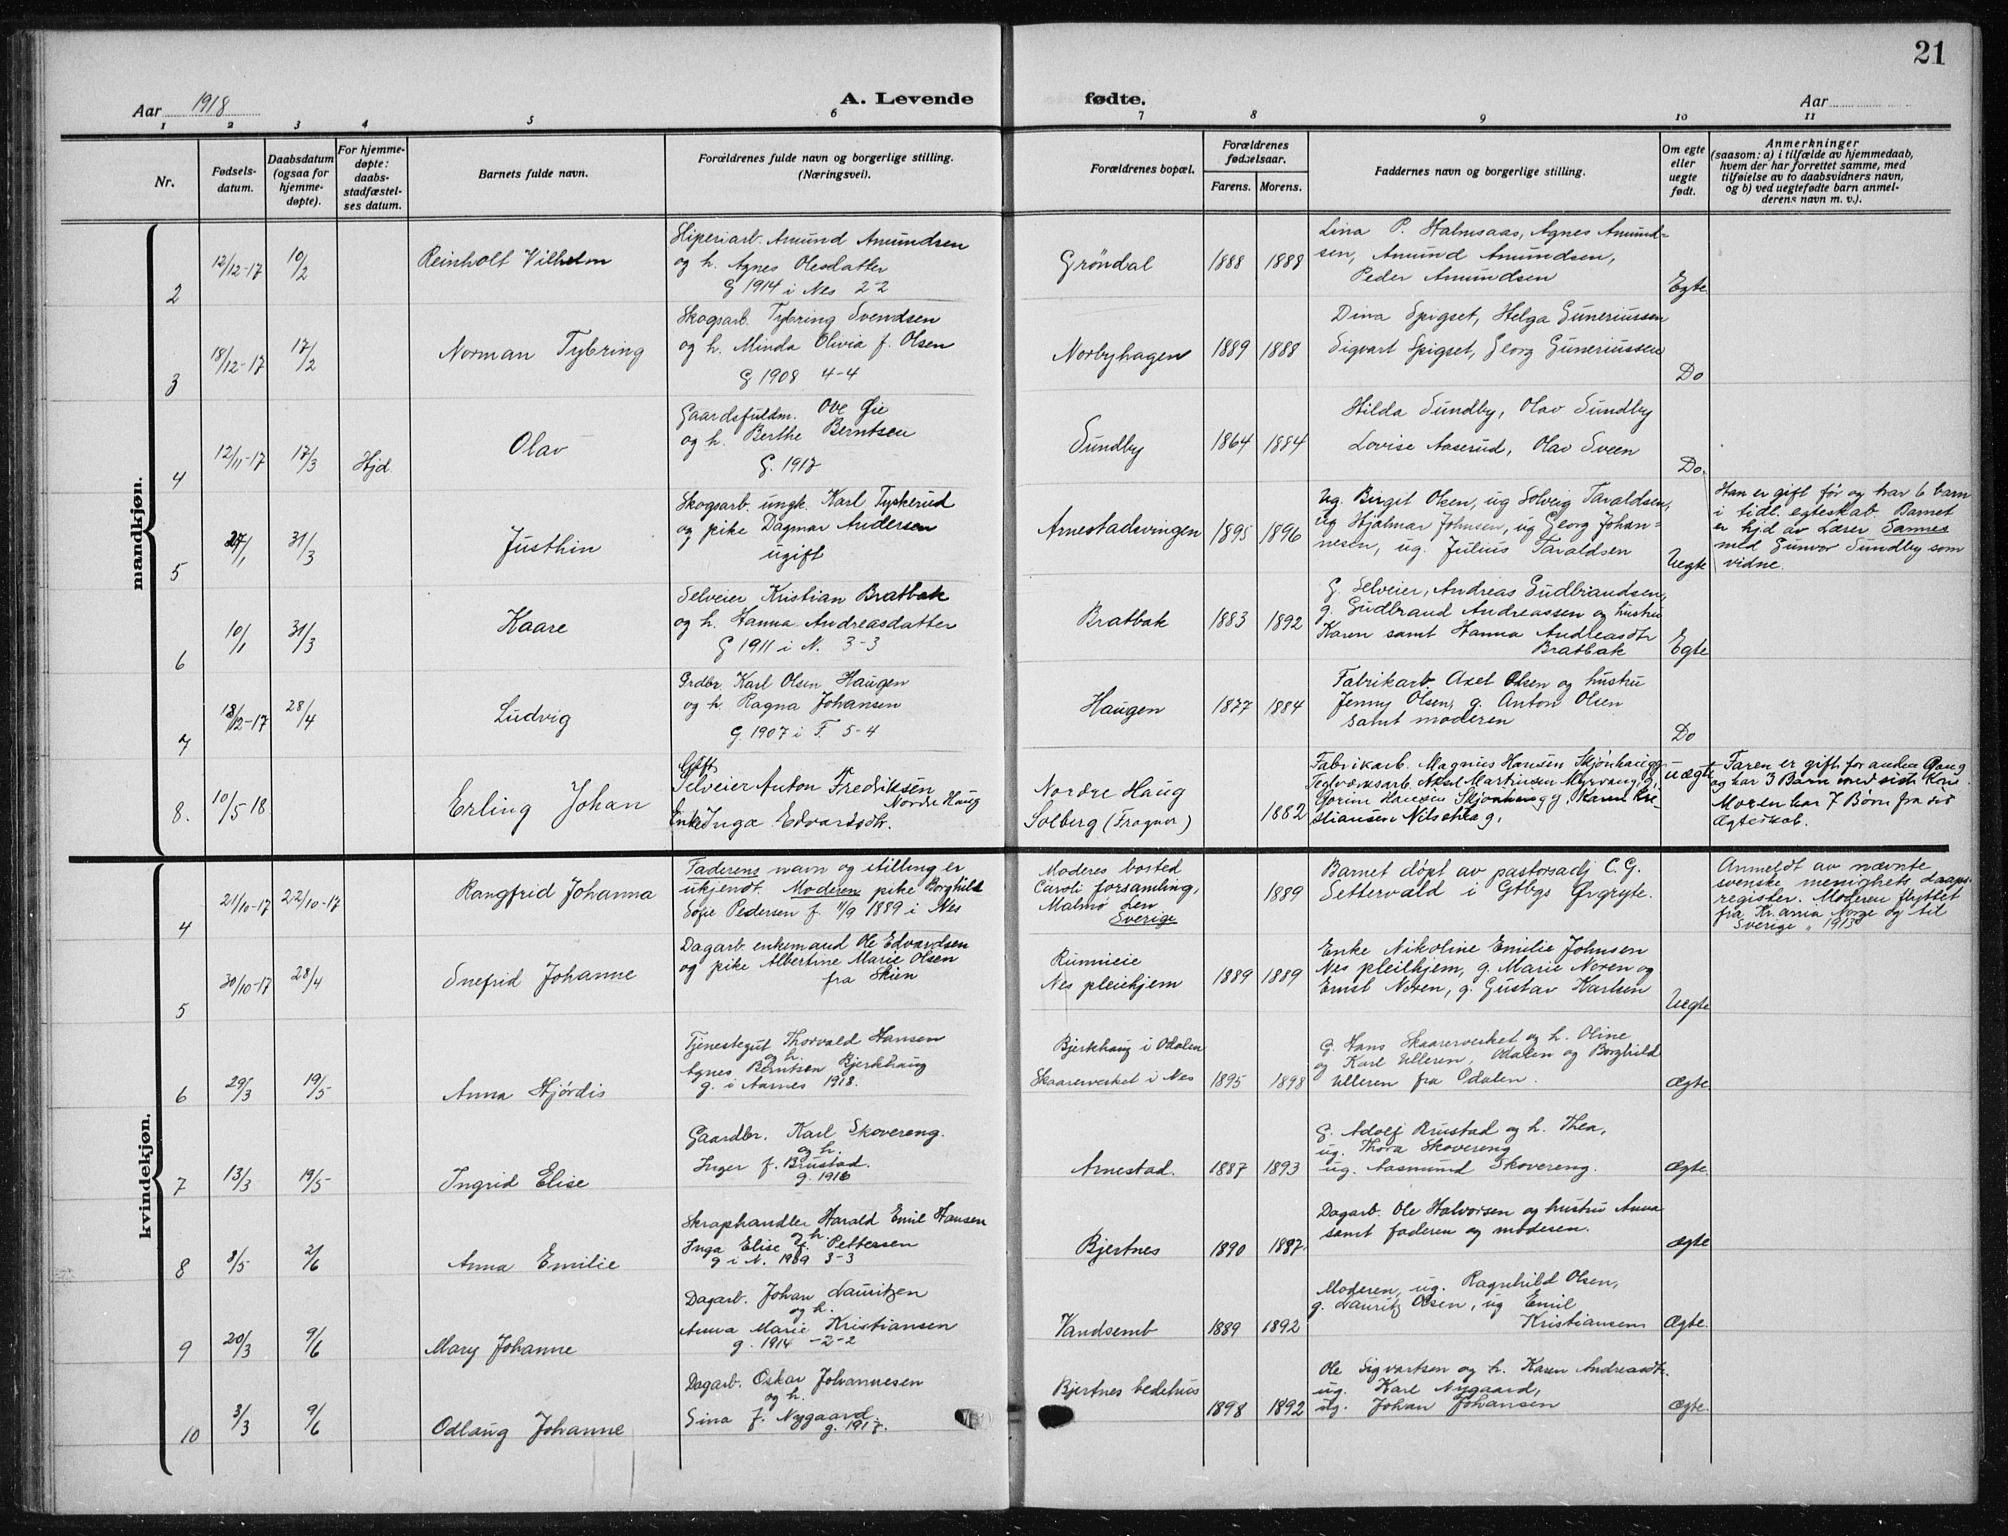 21
Aar 1918
A. Levende fødte.
Aar
1 2 3 4 5 6 7 8 9 10 11
Nr.
Fødsels-
datum.
Daabsdatum
(ogsaa for
hjemme-
døpte).
For hjemme-
døpte:
daabs-
stadfæstel-
ses datum.
Barnets fulde navn.
Forældrenes fulde navn og borgerlige stilling.
(Næringsvei).
Forældrenes bopæl.
Forældrenes
fødselsaar.
Farens. Morens.
Faddernes navn og borgerlige stilling.
Om egte
eller
uegte
født.
Anmerkninger
(saasom: a) i tilfælde av hjemmedaab,
hvem der har forrettet samme, med
tilføielse av to daabsvidners navn,
og b) ved uegtefødte barn anmel-
derens navn m. v.).
mandkjøn.
2
12/12-17
10/2
Reinholt Vilhelm
Amund Amundsen
og h. Agnes Olesdatter
G 1914 i Nes 2-2
Grøndal
1888
1888
Lina P. Halmsaas, Agnes Amund-
sen, Amund Amundsen,
Peder Amundsen
Egte
3
18/12-17
17/2
Norman Tybring
Skogsarb. Tybring Svendsen
og h. Minda Olivia f. Olsen
G 1908 4-4
Norbyhagen
1889
1888
Dina Spigset, Helga Guneriussen
Sigvart Spigset, Georg Guneriussen
Do
4
12/11-17
17/3
Hjd
Olav
Gaardsfuldm. Ove Øie
og h. Berthe Berntsen
G. 1917
Sundby
1864
1884
Hilda Sundby, Olav Sundby
Lovise Aaserud, Olav Sveen
Do.
Han er gift før og har 6 barn
i tidl. egteskab. Barnet
er hjd av Lærer Sannes
med Gunvor Sundby som
vidne.
5
27/1
31/3
Justhin
Skogsarb. ungk. Karl Tyskerud
og pike Dagmar Andersen
ugift
Arnestadsvingen
1895
1896
Ug. Birget Olsen, ug Solveig Taraldsen,
ug Hjalmar Johnsen, ug Georg Johan-
nesen, ug. Julius Taraldsen
Uegte
6
10/1
31/3
Kaare
Selveier Kristian Bratbak
og h. Hanna Andreasdatter
G 1911 i N. 3-3
Bratbak
1883
1892
G. Selveier, Andreas Gudbrandsen,
g. Gudbrand Andreassen og hustru
Karen samt Hanna Andreasdtr
Bratbak
Egte
7
18/12-17
28/4
Ludvig
Grdbr. Karl Olsen Haugen
og h. Ragna Johansen
G. 1907 i F. 5-4
Haugen
1877
1884
Fabrikarb Axel Olsen og hustru
Jenny Olsen, g. Anton Olsen
samt moderen
Do
8.
10/5 18
Erling Johan
Gift
Selveier Anton Fredriksen
Nordre Haug
Enke Inga Edvardsdtr.
Nordre Haug
Solberg (Frogner)
1882
Fabrikarb. Magnus Hansen Skjønhaug g,
Teglverksarb. Axel Martinsen Myrvang g,
Hansen Skjønhaug g, Karen Kri-
stiansen g,
uægte
Faren er gift for anden Gang
og har 3 Barn med sidst Kone
Moren har 7 Børn fra sit
Ægteskab.
kvindekjøn.
4
21/10-17
22/10-17
Rangfrid Johanna
Faderens navn og stilling er
ukjendt. Moderen pike Borghild
Sofie Pedersen f. 11/9 1889 i Nes
Moderes bosted
Caroli forsamling,
Malmø Len
Sverige
1889
Barnet døpt av pastorsadj C. G.
Settervald i Gtbgs Ørgryte.
Anmeldt av nævnte
svenske menighets daaps-
register. Moderen flyttet
fra Kr.ania Norge og til
Sverige " 1915
5
30/10-17
28/4
Snefrid Johanne
Dagarb. enkemand Ole Edvardsen
og pike Albertine Marie Olsen
fra Skien
Runnieie
Nes pleiehjem
1889
1889
Enke Nikoline Emilie Johnsen
Nes pleilhjem, g. Marie Noren og
Ernst Noren, g. Gustav Karlsen
Uegte
6
29/3
19/5
Anna Hjørdis
Tjenestegut Thorvald Hansen
og h.
Agnes Berntsen Bjerkhaug
g. i Aarnes 1918.
Bjerkhaug i Odalen
Skaarerverket i Nes
1895
1898
G. Hans Skaarerverket og h. Oline
og Karl Ulleren, Odalen og Borghild
Ulleren fra Odalen.
Ægte
7
13/3
19/5
Ingrid Elise
Gaardbr. Karl Skovereng.
og h.
Inger f. Brustad.
g. 1916
Arnestad.
1887
1893
G. Adolf Brustad og h. Thea,
ug. Thora Skovereng
ug. Aasmund Skovereng.
Ægte.
8
8/5
2/6
Anna Emilie
Skraphandler Harald Emil Hansen
og h.
Inga Elise f. Pettersen
g i N. 1909 3-3
Bjertnes
1890
1887.
Dagarb. Ole Halvorsen og hustru Anna
samt faderen og moderen.
Ægte
9
20/3
9/6
Mary Johanne
Dagarb. Johan Lauritzen
og h.
Anna Marie Kristiansen
g. 1914 -2-2
Vandsemb
1889
1892
Moderen, ug. Ragnhild Olsen,
g. Lauritz Olsen, ug Emil
Kristiansen
Ægte.
10
3/3
9/6
Odlaug Johanne
Dagarb. Oskar Johannesen
og h.
Gina f. Nygaard.
g. 1917.
Bjertnes bedehus
1898
1892
Ole Sigvartsen og h. Karen Andreasdtr.
ug. Karl Nygaard,
ug. Johan Johansen
Ægte.